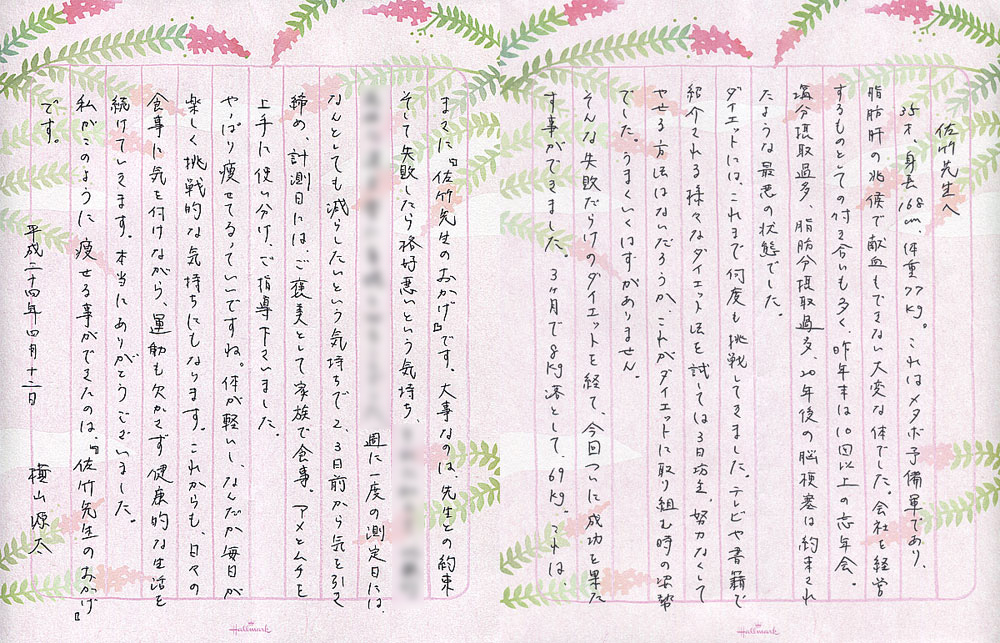 佐竹先生へ
35才、身長168cm、体重77kg。これはメタボ予備軍であり、
脂肪肝の兆候で献血もできない大変な体でした。会社を経営
するものとしての付き合いも多く、昨年末は10回以上の忘年会。
塩分摂取過多、脂肪分摂取過多、20年後の脳梗塞は約束され
たような最悪の状態でした。
ダイエットには、これまで何度も挑戦してきました。テレビや書籍で
紹介される様々なダイエット法を試しては3日坊主。努力なくして
やせる方法はないだろうか、これがダイエットに取り組む時の姿勢
でした。うまくいくはずがありません。
そんな失敗だらけのダイエットを経て、今回ついに成功を果た
す事ができました。3ヶ月で8kg落として、69kg。これは、
まさに『佐竹先生のおかげ』です。大事なのは、先生との約束
そして失敗したら格好悪いという気持ち、
週に一度の測定日には、
なんとしても減らしたいという気持ちで2、3日前から気を引き
締め、計測日には、ご褒美として家族で食事。アメとムチを
上手に使い分け、ご指導下さいました。
やっぱり痩せてるっていいですね。体が軽いし、なんだか毎日が
楽しく挑戦的な気持ちにもなります。これからも、日々の
食事に気を付けながら、運動も欠かさず健康的な生活を
続けていきます。本当にありがとうございました。
私がこのように痩せる事ができたのは、『佐竹先生のおかげ』
です。
平成二十四年四月十二日
横山源太
Hallmark
Hallmark